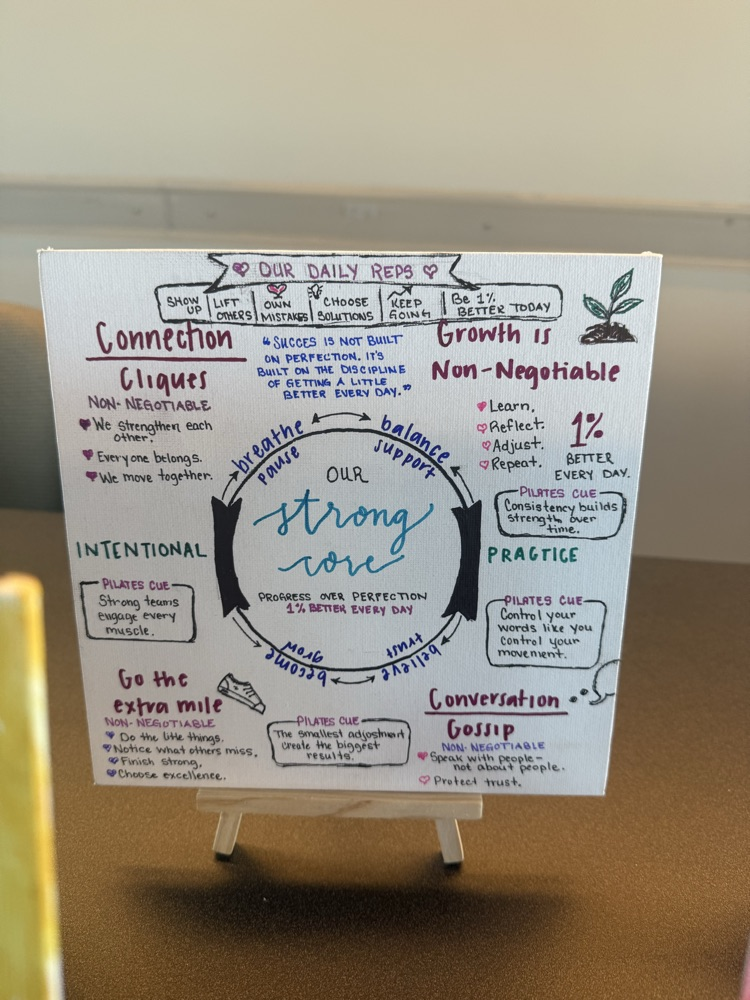 OUR DAILY REPS
SHOW UP
LIFT OTHERS
OWN MISTAKES
CHOOSE SOLUTIONS
KEEP GOING
Be 1% BETTER TODAY
Connection
Cliques
NON-NEGOTIABLE
We strengthen each
other.
Everyone belongs.
We move together.
"SUCCES IS NOT BUILT
ON PERFECTION. IT'S
BUILT ON THE DISCIPLINE
OF GETTING A LITTLE
BETTER EVERY DAY."
Growth is
Non-Negotiable
Learn.
Reflect.
Adjust.
Repeat.
1%
BETTER
EVERY DAY.
PILATES CUE
Consistency builds
strength over
time.
breathe
pause
balance
support
OUR
strong
core
PROGRESS OVER PERFECTION
1% BETTER EVERY DAY
INTENTIONAL
PRACTICE
PILATES CUE
Strong teams
engage every
muscle.
PILATES CUE
Control your
words like you
control your
movement.
grow
become
trust
believe
Go the
extra mile
NON-NEGOTIABLE
Do the little things.
Notice what others miss.
Finish strong.
Choose excellence.
PILATES CUE
The smallest adjustment
create the biggest
results.
Conversation
Gossip
NON-NEGOTIABLE
Speak with people-
not about people.
Protect trust.